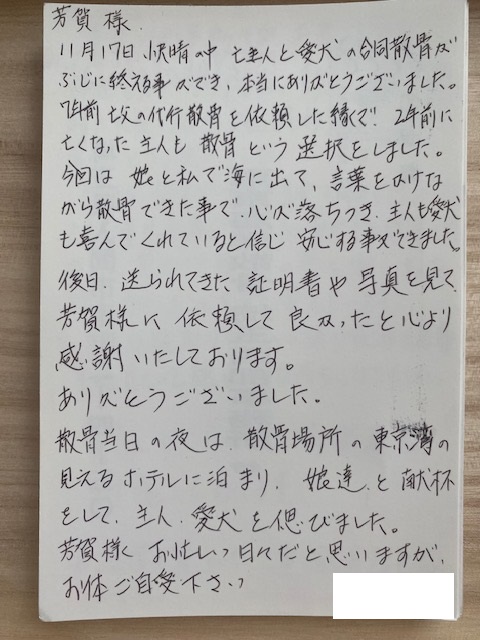 芳賀様
11月17日 快晴の中 亡主人と愛犬の合同散骨が
ぶじに終える事ができ、本当にありがとうございました。
7年前 亡父の代行散骨を依頼した縁で! 2年前に
亡くなった主人も 散骨という選択をしました。
今回は 娘と私で海に出て、言葉をかけな
がら散骨できた事で、心が落ちつき、主人も愛犬
も喜んでくれていると信じ 安心する事ができました。
後日、送られてきた 証明書や写真を見て
芳賀様に 依頼して良かったと心より
感謝いたしております。
ありがとうございました。
散骨当日の夜は、散骨場所の東京湾の
見えるホテルに泊まり、娘達と献杯
をして、主人、愛犬を偲びました。
芳賀様、お忙しい日々だと思いますが、
お体ご自愛下さい